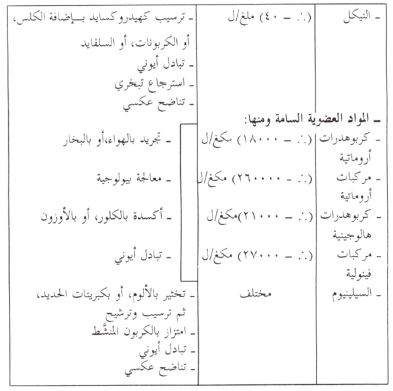 ـ النيكل (٠.٠ – ٤٠) ملغ/ل ـ ترسيب كهيدروكسايد بـإضافة الكلس،
أو الكربونات، أو السلفايد
ـ تبادل أيوني
ـ استرجاع تبخري
ـ تناضح عكسي
ـ المواد العضوية السامة ومنها:
ـ كربوهدرات (٠.٠ – ١٨٠٠٠) مكغ/ل ـ تجريد بالهواء،أو بالبخار
أروماتية
ـ مركبات (٠.٠ – ٢٦٠٠٠٠) مكغ/ل ـ معالجة بيولوجية
أروماتية
ـ كربوهدرات (٠.٠ – ٢١٠٠٠)مكغ/ل ـ أكسدة بالكلور، أو بالأوزون
هالوجينية
ـ مركبات (٠.٠ – ٢٧٠٠٠) مكغ/ل ـ تبادل أيوني
فينولية
ـ السيلينيوم مختلف ـ تخثير بالألوم، أو بكبريتات الحديد،
ثم ترسيب وترشيح
ـ امتزاز بالكربون المنشَّط
ـ تبادل أيوني
ـ تناضح عكسي